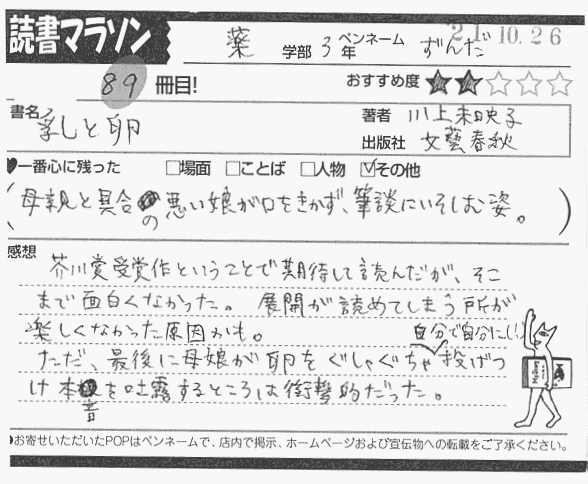 読書マラソン
薬 学部 3年 ペンネーム ずんだ
'21.10.26
89 冊目!
おすすめ度 ★★☆☆☆
書名 乳と卵
著者 川上未映子
出版社 文藝春秋
♥一番心に残った □場面 □ことば □人物 ☑その他
(母親と具合の悪い娘が口をきかず、筆談にいそしむ姿。)
感想
芥川賞受賞作ということで期待して読んだが、そこ
まで面白くなかった。展開が読めてしまう所が
楽しくなかった原因かも。
ただ、最後に母娘が卵を自分で自分にぐしゃぐちゃ投げつ
け本音を吐露するところは衝撃的だった。
お寄せいただいたPOPはペンネームで、店内で掲示、ホームページおよび宣伝物への転載をご了承ください。